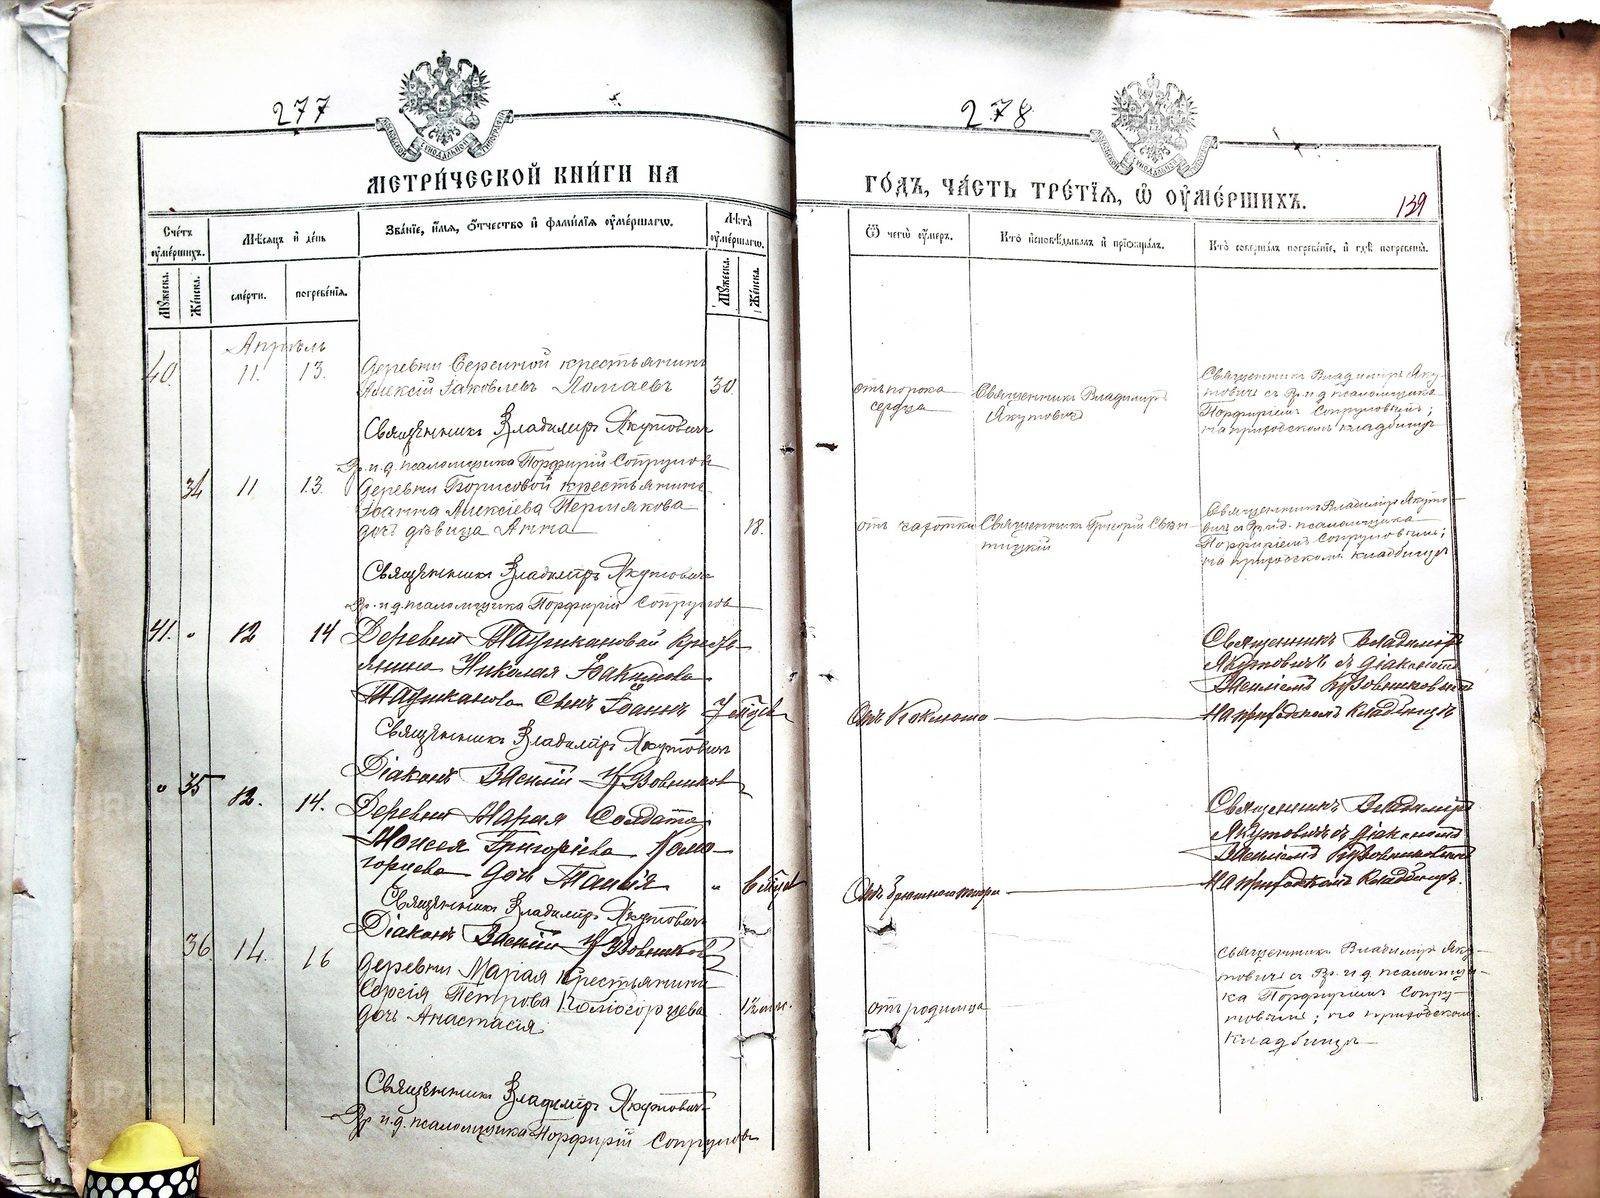 277
МЕТРИ́ЧЕСКОЙ КНИ́ГИ НА
Сче́тъ оуме́ршихъ.
Мѣсяцъ и день
Зва́нїе, и҆́мя, ѻ҆́тчество и҆ фами́лїя оуме́ршагѡ.
Лѣта̀ оуме́ршагѡ.
Мꙋжеска.
Же́нска.
сме́рти.
погребе́нїѧ.
Мꙋжеска.
Же́нска.
Апрѣль
40. 11. 13. деревни крестьянинъ
Алексій Іаковлевъ 30.
Священникъ Владимиръ Якутовичъ
Вр. и. д. псаломщика Порфирій Сопруновъ
34 11 13. деревни Борисовой крестьянина
Іоанна Алексіева Пермякова
дочь дѣвица Анна 18.
Священникъ Владимиръ Якутовичъ
Вр. и д. псаломщика Порфирій Сопруновъ
41. " 12 14 Деревни Кресть-
янина Николая
Сынъ Іоаннъ 7
Священникъ Владимиръ Якутовичъ
Діаконъ Василій
" 35 12. 14. Деревни Марая Солдата
Моисея Григоріева Колмо-
горцева дочь " 6
Священникъ Владимиръ Якутовичъ
Діаконъ Василій
36. 14. 16 деревни Марая Крестьянина
Сергія Петрова Колмогорцева
дочь Анастасія
Священникъ Владимиръ Якутовичъ
Вр. и д. псаломщика Порфирій Сопруновъ
278
ГО́ДЪ, ЧА́СТЬ ТРЕ́ТЇЯ, Ѽ ОУМЕ́РШИХЪ.
139
Ѿ чегѡ̀ оу҆́меръ.
Кто̀ и҆сповѣ́дывалъ и҆ прїѡбща́лъ.
Кто̀ соверша́лъ погребе́нїе, и҆ гдѣ̀ погребены̀.
отъ порока
сердца
Священникъ Владимиръ
Якутовичъ
Священникъ Владимиръ Яку-
товичъ съ Вр. и д псаломщика
Порфиріемъ Сопруновымъ;
на приходскомъ кладбищѣ
отъ чахотки
Священникъ Григорій
Священникъ Владимиръ Якуто-
вичъ съ Вр. и д. псаломщика
Порфиріемъ Сопруновымъ;
на приходскомъ кладбищѣ
Отъ Коклюша
Священникъ Владиміръ
Якутовичъ съ діакономъ
Василіемъ
На приходскомъ Кладбищѣ
Священникъ Владиміръ
Якутовичъ съ діакономъ
Василіемъ
На приходскомъ Кладбищѣ.
отъ родимца
Священникъ Владимиръ Яку-
товичъ съ Вр. и д псаломщи-
ка Порфиріемъ Сопру-
новымъ; на приходском
кладбищѣ